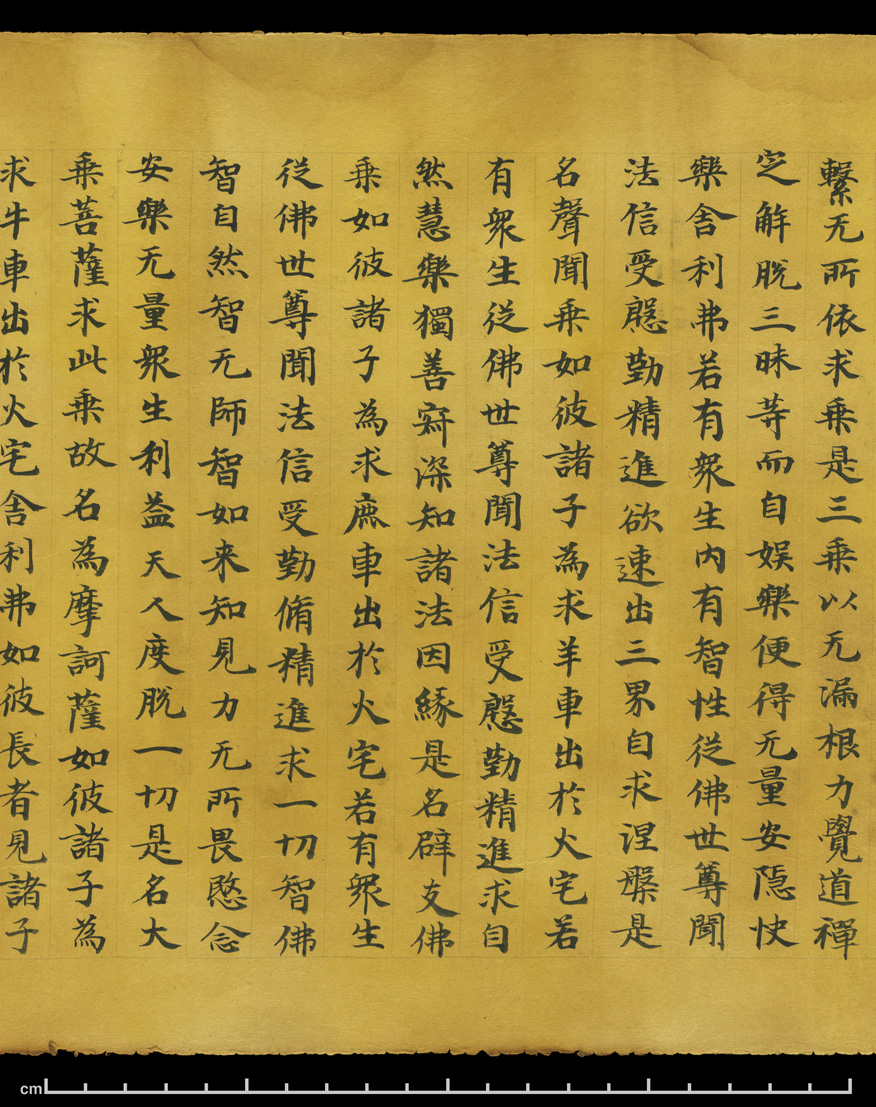 繫无所依求乗是三乗以无漏根力覺道禪
定解脫三昧等而自娛樂便得无量安隱快
樂舍利弗若有衆生內有智性從佛世尊聞
法信受慇勤精進欲速出三界自求涅槃是
名聲聞乗如彼諸子為求羊車出於火宅若
有衆生從佛世尊聞法信受慇勤精進求自
然慧樂獨善寂深知諸法因緣是名辟支佛
乗如彼諸子為求鹿車出於火宅若有衆生
從佛世尊聞法信受勤脩精進求一切智佛
智自然智无師智如来知見力无所畏愍念
安樂无量衆生利益天人度脫一切是名大
乗菩薩求此乗故名為摩訶薩如彼諸子為
求牛車出於火宅舍利弗如彼長者見諸子
cm